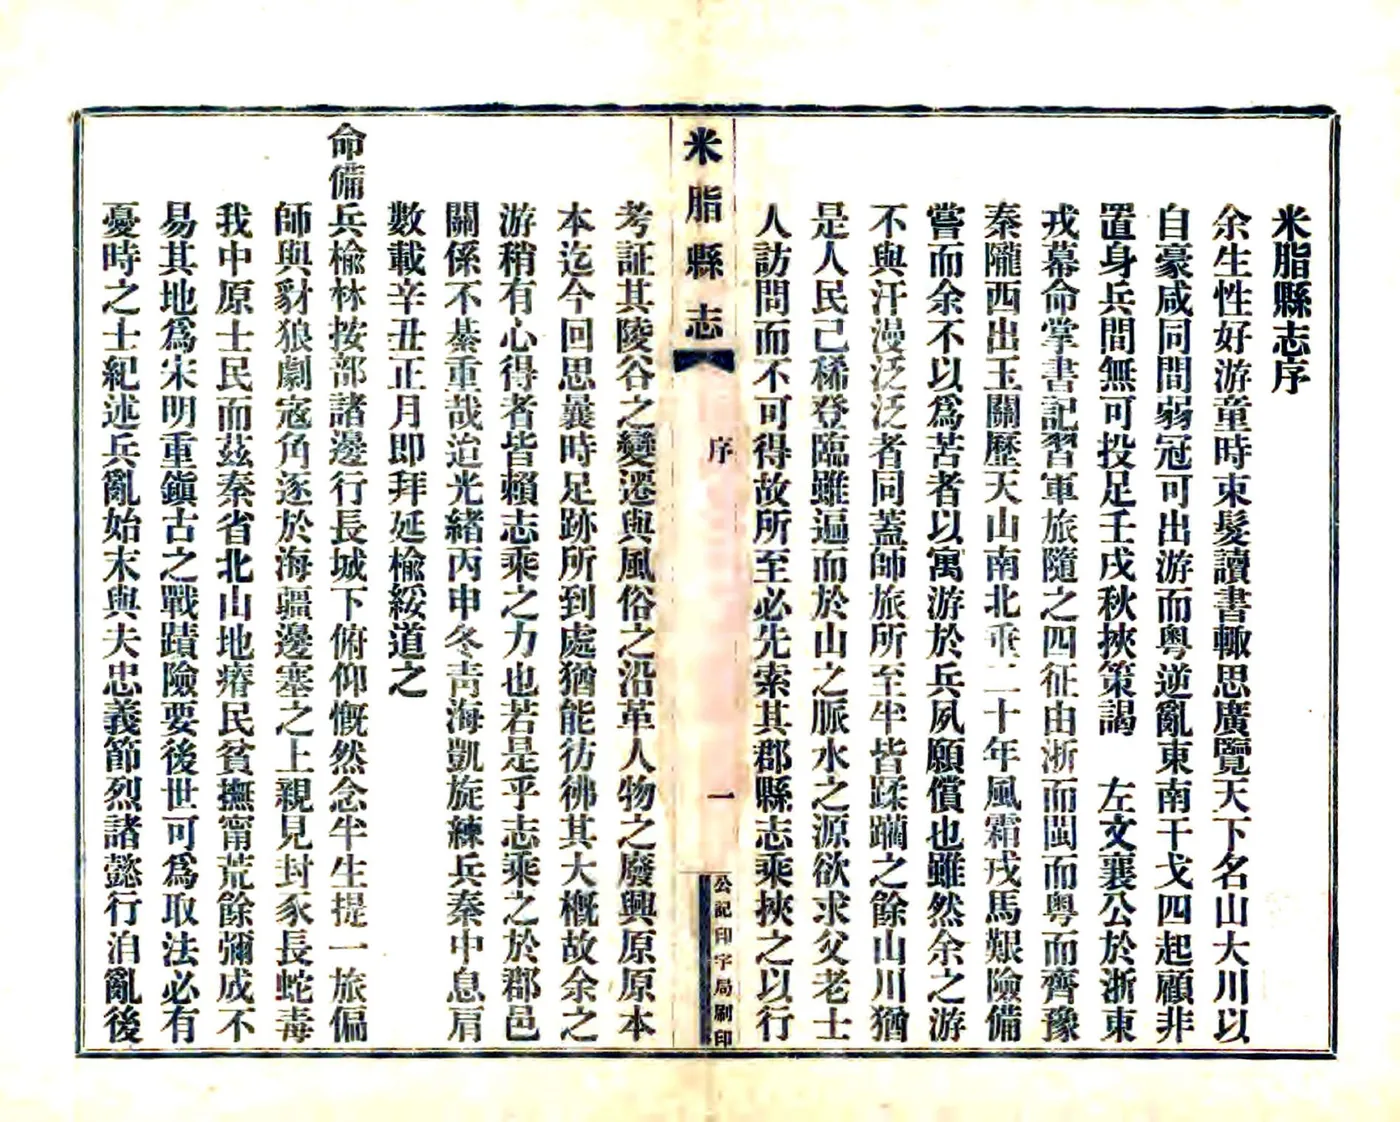 米脂縣志序
余生性好游童時束髮讀書輙思廣覽天下名山大川以
自豪咸同間弱冠可出游而粵逆亂東南干戈四起顧非
置身兵間無可投足壬戌秋挾策謁　左文襄公於浙東
戎幕命掌書記習軍旅隨之四征由浙而閩而粵而齊豫
秦隴西出玉關歷天山南北垂二十年風霜戎馬艱險備
嘗而余不以爲苦者以寓游於兵夙願償也雖然余之游
不與汗漫泛泛者同蓋師旅所至半皆蹂躪之餘山川猶
是人民已稀登臨雖遍而於山之脈水之源欲求父老士
人訪問而不可得故所至必先索其郡縣志乘挾之以行
米脂縣志
序
一
公記印字局刷印
考証其陵谷之變遷與風俗之沿革人物之廢興原原本
本迄今回思曩時足跡所到處猶能彷彿其大概故余之
游稍有心得者皆賴志乘之力也若是乎志乘之於郡邑
關係不綦重哉迨光緒丙申冬靑海凱旋練兵秦中息肩
數載辛丑正月即拜延榆綏道之
命備兵榆林按部諸邊行長城下俯仰慨然念半生提一旅偏
師與豺狼劇寇角逐於海疆邊塞之上親見封豕長蛇毒
我中原士民而茲秦省北山地瘠民貧撫甯荒餘彌成不
易其地爲宋明重鎭古之戰蹟險要後世可爲取法必有
憂時之士紀述兵亂始末與夫忠義節烈諸懿行洎亂後